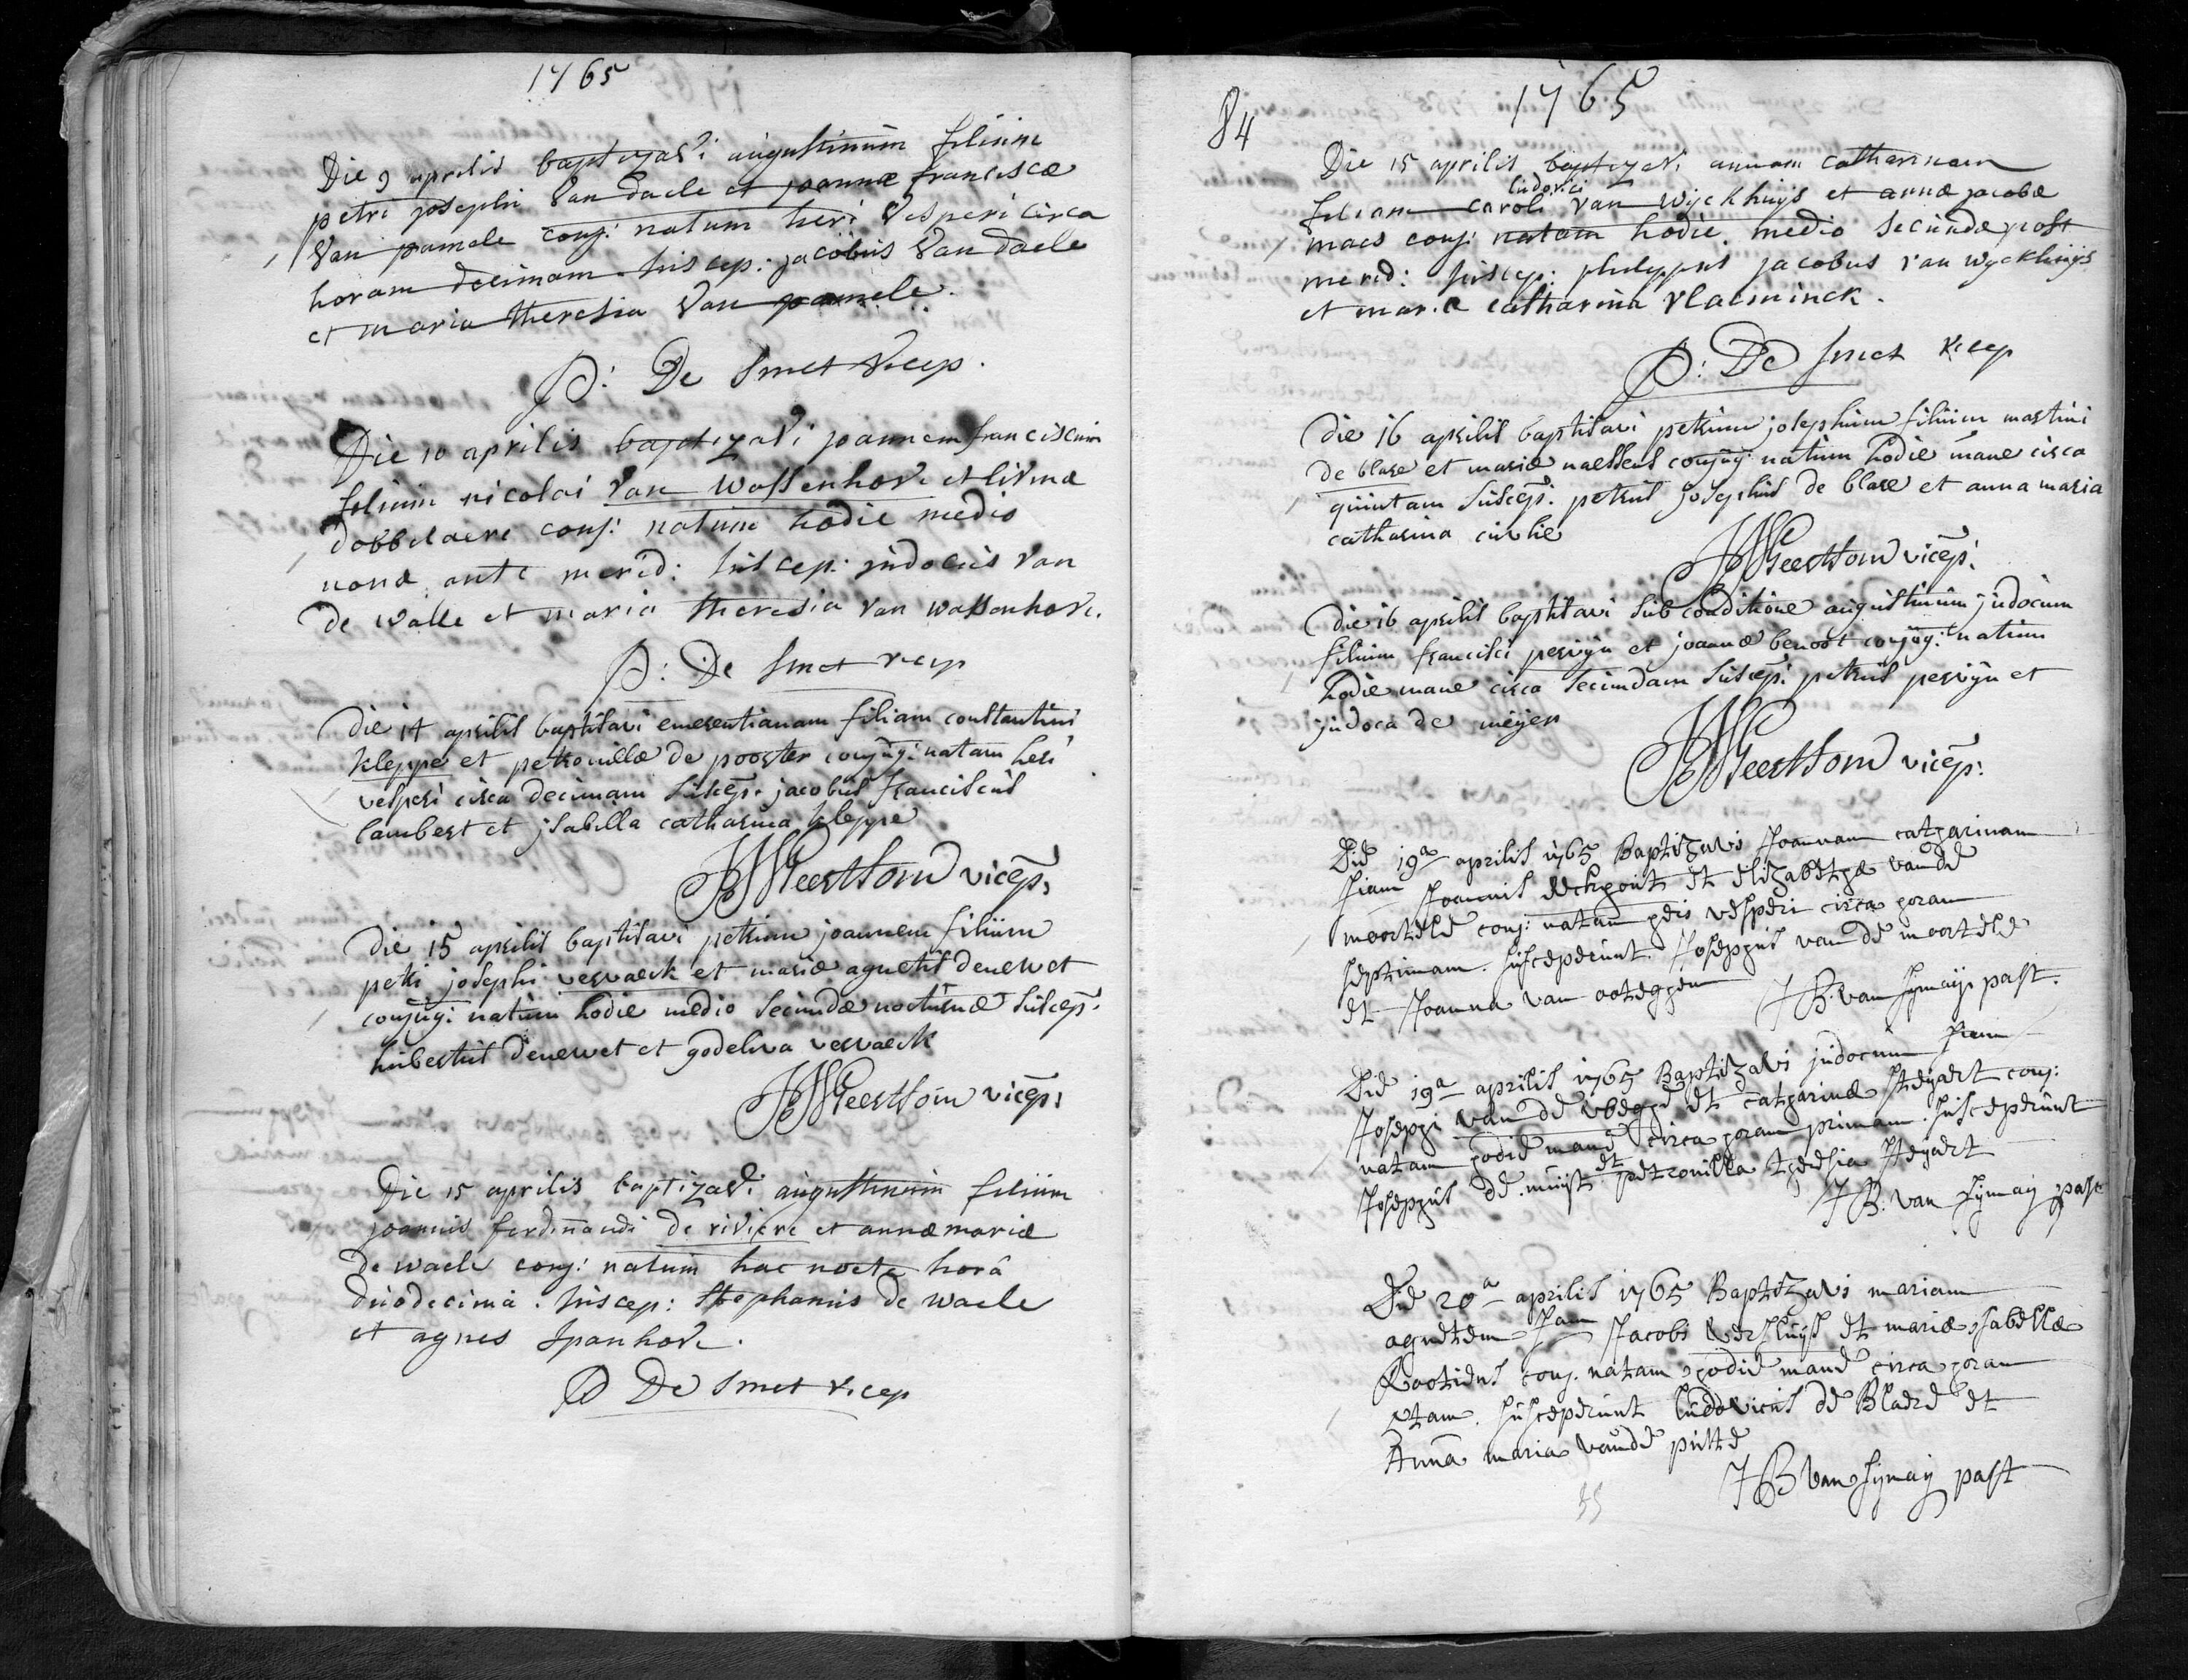 1765
Die 9 aprilis baptizavi augustinum filium
petri josephi van daele et joannæ franciscæ
van pamele conj: natum heri vesperi circa
horam decimam. suscep: jacobus van daele
et maria theresia van pamele.
P: De Smet vicep.
Die 10 aprilis baptizavi joannem franciscum
filium nicolai van wassenhove et livinæ
dobbelaere conj: natum hodie medio
nonæ ante merid: suscep: judocus van
de walle et maria theresia van wassenhove.
P: De Smet vicep
die 14 aprilis baptisavi emerentianam filiam constantini
kleppe et petronillæ de pooster conjug: natam heri
vesperi circa decimam suscep: jacobus franciscus
lambert et jsabella catharina kleppe
vicep:
die 15 aprilis baptisavi petrum joannem filium
petri josephi vervaeck et mariæ agnetis denewet
conjug: natum hodie medio secundæ nocturnæ suscep:
hubertus denewet et godeliva vervaeck
vicep:
Die 15 aprilis baptizavi augustinum filium
joannis ferdinandi de riviere et annæ mariæ
de waele conj: natum hac nocte horâ
duodecima. suscep: Stephanus de waele
et agnes spanhove.
P De Smet vicep
84
1765
Die 15 aprilis baptizavi annam catharinam
filiam caroli ludovici van wyckhuys et annæ jacobæ
maes conj: natam hodie medio secundæ post
merid: suscep: philippus jacobus van wyckhuys
et maria catharina vlaeminck.
P: De Smet vicep
die 16 aprilis baptisavi petrum josephum filium martini
de blare et mariæ naessens conjug: natum hodie mane circa
quintam suscep: petrus josephus de blare et anna maria
catharina
vicep:
die 16 aprilis baptisavi sub conditione augustinum judocum
filium francisci pervijn et joannæ benoot conjug: natum
hodie mane circa secundam suscep: petrus pervijn et
judoca de meijer
vicep:
Die 19a aprilis 1765 Baptizavi Joannam catharinam
fiam Joannis eechout et elizabethæ vande
moortele conj: natam heri vesperi circa horam
septimam. susceperunt Josephus van de moortele
et Joanna van ooteghem
J B. van past.
Die 19a aprilis 1765 Baptizavi judocum fium
Josephi van de vbeghe et catharinæ steyaert conj:
natum hodie mane circa horam primam. susceperunt
Josephus de muijt et petronilla theresia steyaert
J B. van past
Die 20a aprilis 1765 Baptizavi mariam
agnetem fiam Jacobi versluys et mariæ jsabellæ
Lootiens conj. natam hodie mane circa horam
susceperunt Ludovicus de Blaere et
Anna maria vande putte
J B van past